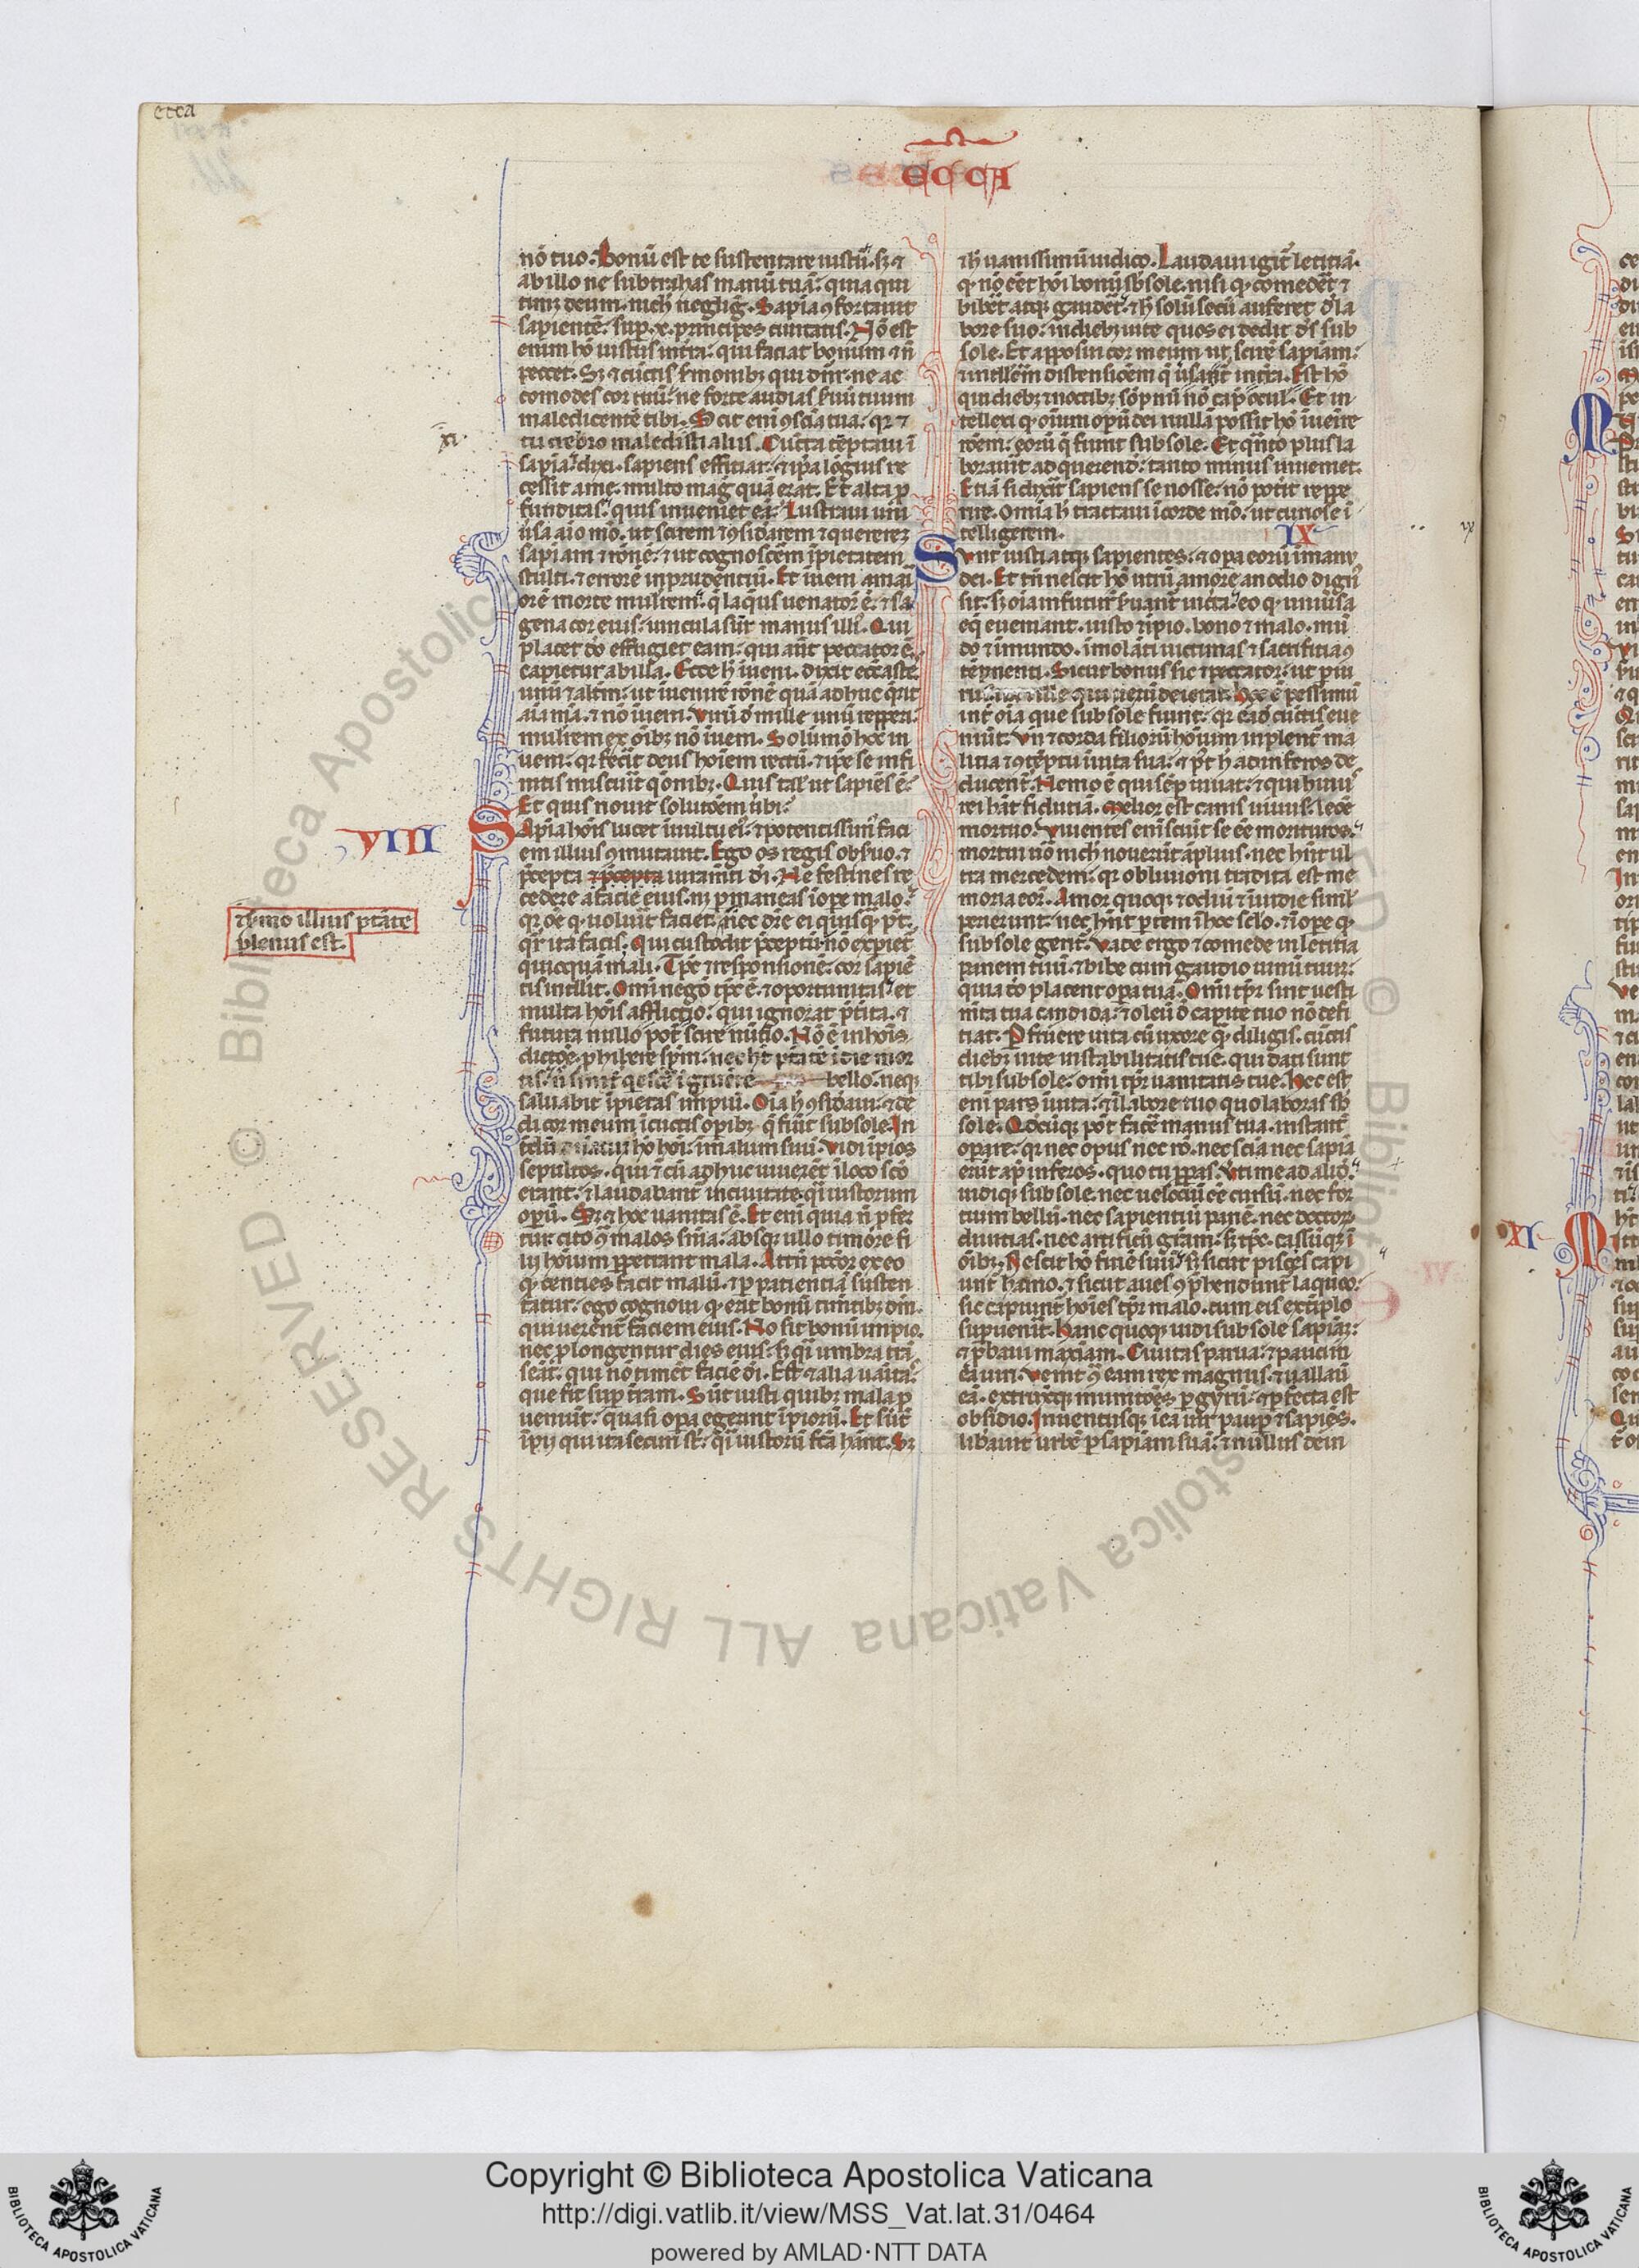 ecca
ECCA
nō tuo. Bonū est te sustentare iustū. sȝ ⁊
ab illo ne subtrahas manū tuā: quia qui
timȝ deum. nich neglig̃. Sapia ꝯfortauit
sapientē. sup .x. principes ciuitatis. Nō est
enim hō iustus in tr̄a: qui faciat bonum ⁊ ñ
peccet. Sȝ ⁊ cūctis ẜmonibȝ qui dn̄r. ne ac
comodes cor tuū. ne forte audias ẜuū tuum
maledicentē tibi. Scit eni ꝯscia tua: qꝛ ⁊
tu crebro maledixisti aliis. Cūcta tēptaui ī
xi
sapia. dixi. sapiens efficiar. ⁊ ip̄a lōgius re
cessit a me. multo mag̃ quā erat. Et alta ꝓ
funditas. quis inueniet eā. Lustraui uniu
ūsa aīo mō. ut scirem ⁊ ꝯsidarem ⁊ quererez
sapiam ⁊ rōnē: ⁊ ut cognoscem īpietatem
stulti. ⁊ errorē inprudentiū. Et iueni amari
orē morte mulierem. q̄ laq̄us uenator̄ ē. ⁊ sa
gena cor eius. uincula sūt manus illi. Qui
placet dō effugiet eam: qui aūt peccator ē.
capietur ab illa. Ecce h̄ iueni. dixit ecc̄aste.
unū ⁊ altm̄. ut inuenirē rōnē quā adhuc q̄rit
aīa mīa. ⁊ nō iueni. Virū ō mille unū repperi.
mulierem ex oībȝ nō iueni. Solūmō hoc in
ueni. qꝛ fecit deus hoīem rectū. ⁊ ip̄e se infi
nitis miscuit q̄onibȝ. Quis tal̄ ut sapiēs ē.
Et quis nouit solutōem ūbi.
VIII
Sapia hoīs lucet ī uultu ei⁹. ⁊ potentissim⁹ faci
em illius ꝯmutauit. Ego os regis obẜuo. ⁊
p̄cepta ⁊ p̄cepta iuramti dī. Ne festines re
cedere a facie eius. nȝ ꝑmaneas ī ope malo.
qꝛ oē q̄ uoluit faciet. nec dr̄e ei quisq̄ pt̄.
⁊ ẜmo illius ptāte
plenus est.
qꝛ ita facis. Qui custodit p̄ceptū. nō expiet̄
quicquā mali. Tp̄s ⁊ responsionē. cor sapiē
tis intllit. Omī negō tp̄s ē. ⁊ oportunitas. et
multa hoīs afflictio: qui ignorat p̄tita. ⁊
futura nullo pot̄ scire nūtio. Nō ē in hoīs
dictōe ꝓhibere sp̄m. nec ht̄ ptātē ī die mor
tis. bello. neqȝ
saluabit īpietas impiū. Oīa h̄ ꝯsidaui. ⁊ de
di cor meum ī cūctis opibȝ q̄ fiūt sub sole. In
hō hoī. ī malum suū. Vidi īpios
sepultos. qui ⁊ cū adhuc uiuerēt ī loco scō
erant. ⁊ laudabant̄ in ciuitate q̄i iustorum
opū. Sȝ ⁊ hoc uanitas ē. Et eni quia ñ ꝓfer
tur cito ꝯ malos sn̄ia: absqȝ ullo timore fi
lij hoīum ꝑpetrant mala. Attn̄ pctōr ex eo
q̄ centies facit malū. ⁊ ꝑ patientiā susten
tatur. ego cognoui q̄ erit bonū timtibȝ dm̄.
qui uerent̄ faciem eius. Nō sit bonū impio.
nec ꝓlongentur dies eius. sȝ q̄i umbra trā
seāt. qui nō timēt faciē dī. Est ⁊ alia uāitas.
que fit sup tr̄am. Sūt iusti quibȝ mala ꝓ
ueniūt. quasi opa egerint īpiorū. Et sūt
īpij qui ita securi st̄. q̄i iustorū fcā hn̄t. Sȝ
⁊ h̄ uanissimū iudico. Laudaui igit̄ letitiā.
q̄ nō eēt hoī bonū sb̄ sole. nisi q̄ comedēt ⁊
bibēt atqȝ gaudēt. ⁊ h̄ solū secū auferet d̄ la
bore suo. in diebȝ uite quos ei dedit ds̄ sub
sole. Et apposui cor meum ut scirē sapiam.
⁊ intlligēm distensiōem q̄ ūsat̄ in tr̄a. Est hō
qui diebȝ ⁊ noctibȝ sōpnū nō cap̄ ocul̄. Et in
tellexi q̄ oīum opū dei nullā possit hō iuenire
rōem. eorū q̄ fiunt sub sole. Et q̄nto plus la
borauīt ad querend. tanto minus inueniet.
Etiā si dixit̄ sapiens se nosse. nō potit reppe
rire. Omīa h̄ tractaui ī corde mō. ut curiose ī
telligerem.
IX
Sunt iusti atqȝ sapientes. ⁊ opa eorū ī manu
dei. Et tn̄ nescit hō utrū amore an odio dign⁹
sit. sȝ oīa in futur̄ ẜuant̄ incta. eo q̄ uniūsa
eq̄ eueniant. iusto ⁊ īpio. bono ⁊ malo. mū
do ⁊ īmundo. īmolāti uictimas ⁊ sacrificia ꝯ
tēpnenti. Sicut bonus sic ⁊ peccator. ut piu
rus ita ⁊ ille qui uerū deierat. Hoc ē pessimū
int̄ oīa que sub sole fiunt. qꝛ eadē cūctis eue
niūt. Vn̄ ⁊ corda filiorū hoīum inplent̄ ma
litia ⁊ ꝯtēptu ī uita sua. ⁊ p̄t h̄ ad inferos de
ducent̄. Nemo ē qui sēp uiuat. ⁊ qui huius
rei hāt fidutiā. Melior est canis uiuus. leōe
mortuo. Viuentes eni sciūt se eē morituros.
mortui nō nich nouerūt āplius. nec hn̄t ul
tra mercedem. qꝛ obliuioni tradita est me
moria eor̄. Amor quoqȝ ⁊ odiū ⁊ inuidie simł
perierunt. nec hn̄t ptem ī hoc sclo. ⁊ ī ope q̄
sub sole gerit̄. Vade ergo ⁊ comede in letitia
panem tuū. ⁊ bibe cum gaudio uinū tuū.
quia dō placent opa tua. Omī tp̄r sint uesti
mēta tua candida. ⁊ oleū d̄ capite tuo nō defi
ciat. Ꝑfruere uita cū uxore q̄ diligis. cūctis
diebȝ uite instabilitatis tue. qui dati sunt
tibi sub sole. omī tp̄r uanitatis tue. Hec est
eni pars ī uita. ⁊ ī labore tuo quo laboras sb̄
sole. Qdcūqȝ pōt facē manus tua. instant̄
opare. qꝛ nec opus nec rō. nec scia nec sapia
erūt ap̄ inferos. quo tu ꝓpas. Vti me ad aliō.
uidiqȝ sub sole. nec uelociū eē cursū. nec for
tium bellū. nec sapientiū panē. nec doctorȝ
diuitias. nec artificū grām. sȝ tp̄s. casūqȝ ī
oībȝ. Nescit hō finē suū. sȝ sicut pisces capi
unt̄ hamo. ⁊ sicut aues ꝯp̄hendunt̄ laqueo.
sic capiunt̄ hoīes tp̄r malo. cum eis extēplo
supuenit̄. Hanc quoqȝ uidi sub sole sapiāȝ.
⁊ ꝓbaui maxīam. Ciuitas parua. ⁊ pauci in
ea uiri. Venit ꝯ eam rex magnus. ⁊ uallau
eā. extruxitqȝ munitōes ꝑ gyrū. ⁊ ꝑfecta est
obsidio. Inuentusqȝ ī ea uir paup ⁊ sapiēs.
libauit urbē ꝑ sapiam suā. ⁊ nullus dein
XI
Copyright © Biblioteca Apostolica Vaticana
http://digi.vatlib.it/view/MSS_Vat.lat.31/0464
powered by AMLAD·NTT DATA
BIBLIOTECA APOSTOLICA VATICANA
BIBLIOTECA APOSTOLICA VATICANA
© Biblioteca Apostolica Vaticana ALL RIGHTS RESERVED